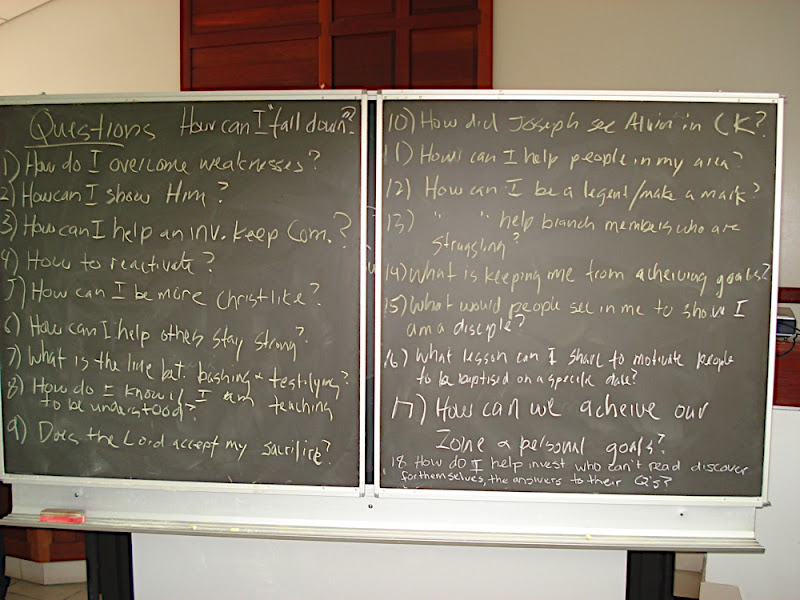 Questions How can I "fall down"?
1) How do I overcome weaknesses?
2) How can I show Him?
3) How can I help an inv. keep Com.?
4) How to reactivate?
5) How can I be more christlike?
6) How can I help others stay strong?
7) What is the line bet. bashing & testifying?
8) How do I know if I am teaching
to be understood?
9) Does the Lord accept my sacrifice?
10) How did Joseph see Alvin in CK?
11) How can I help people in my area?
12) How can I be a legent/make a mark?
13) " " help branch members who are
struggling?
14) What is keeping me from acheiving goals?
15) What would people see in me to show I
am a disciple?
16) What lesson can I share to motivate people
to be baptised on a specific date?
17) How can we acheive our
Zone & personal goals?
18. How do I help invest who can't read discover
for themselves, the answers to their Q's?